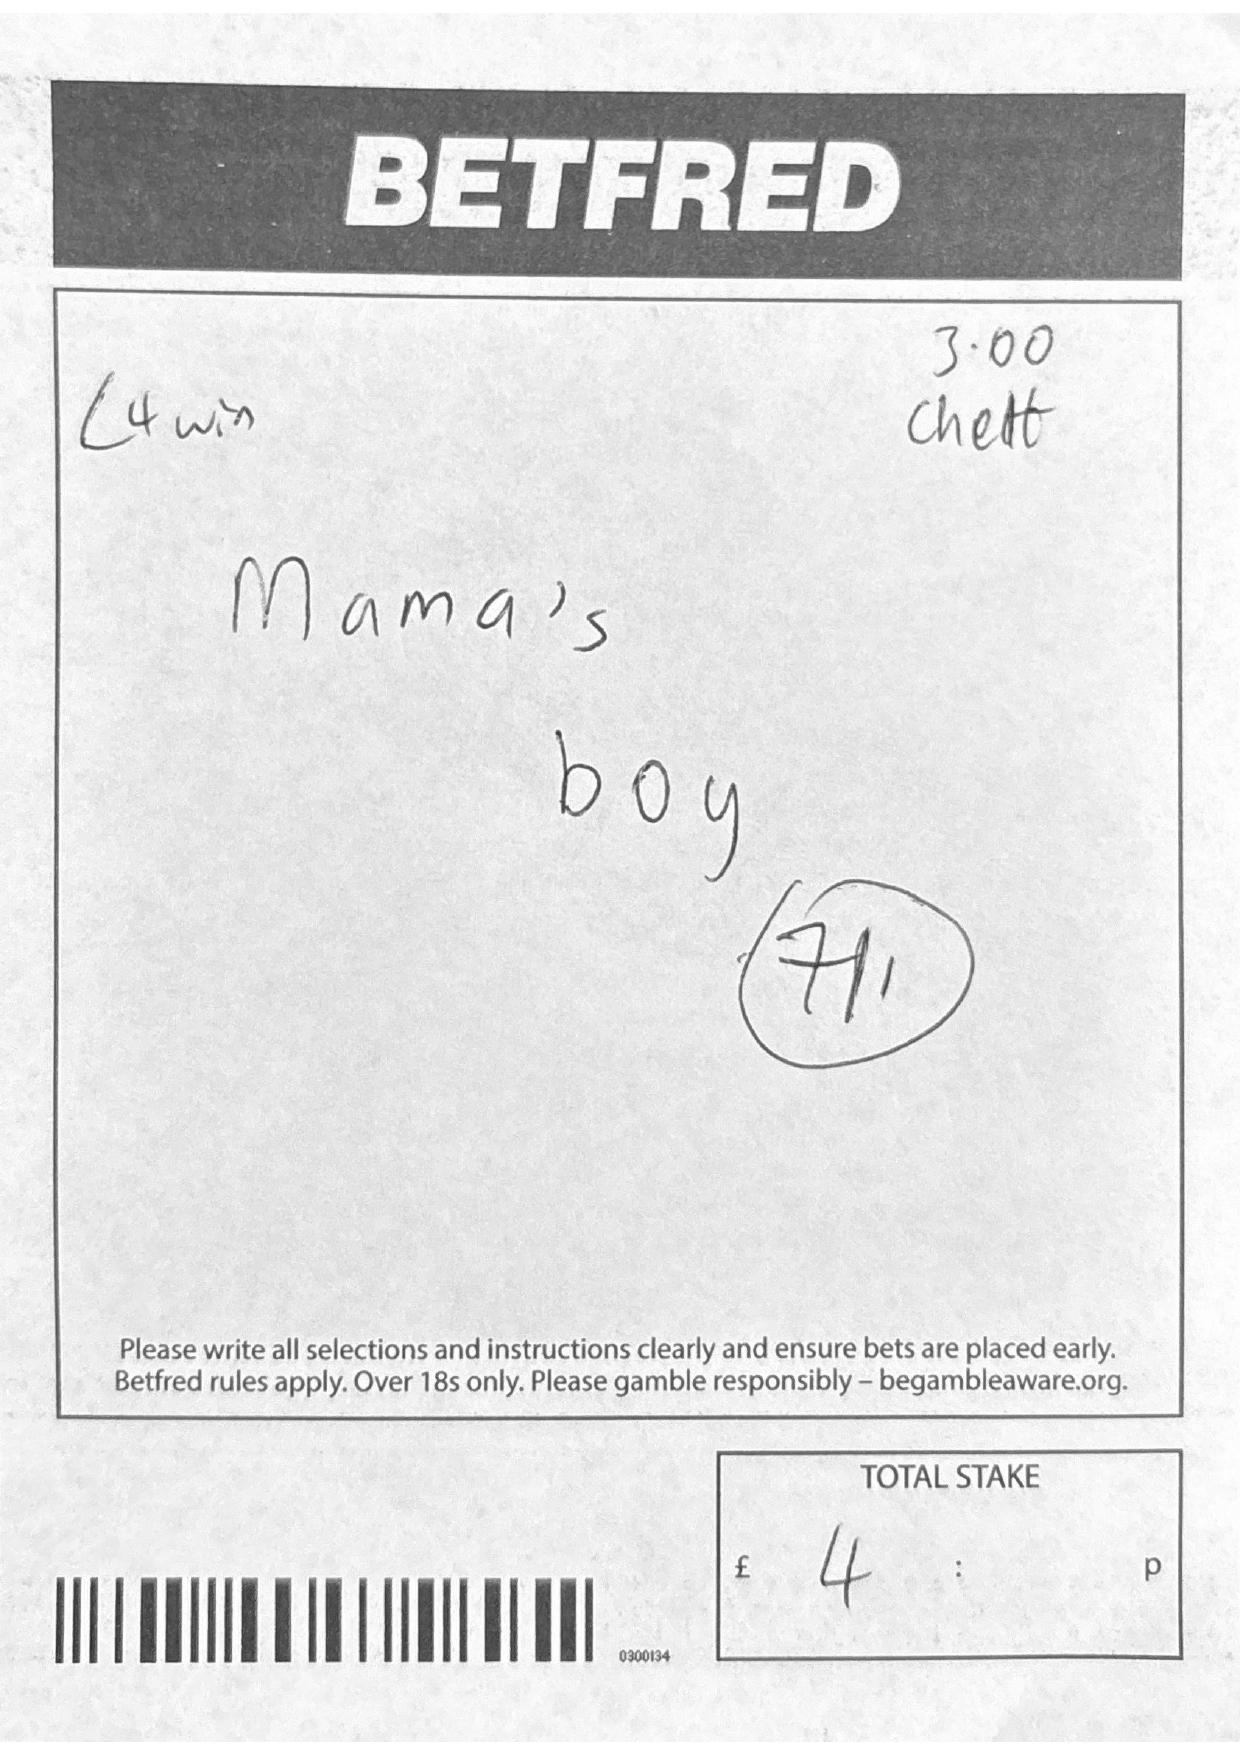 BETFRED
3.00
£4 win
Chelt
Mama's
boy
7/1
Please write all selections and instructions clearly and ensure bets are placed early.
Betfred rules apply. Over 18s only. Please gamble responsibly – begambleaware.org.
TOTAL STAKE
£ 4 : p
0300134